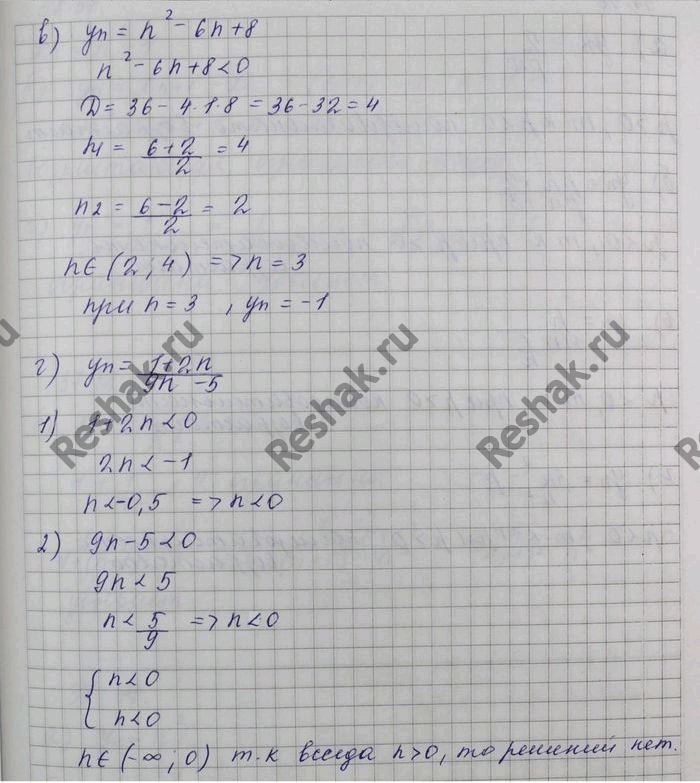 в) yn = n² - 6n + 8
n² - 6n + 8 < 0
D = 36 - 4·1·8 = 36 - 32 = 4
n1 = (6+2)/2 = 4
n2 = (6-2)/2 = 2
n∈(2; 4) => n = 3
при n = 3, yn = -1
г) yn = (1+2n)/(9n-5)
1) 1+2n<0
2n<-1
n<-0,5 => n<0
2) 9n-5<0
9n<5
n<5/9 => n<0
{ n<0
n<0
n∈(-∞; 0) т.к всегда n>0, то решений нет.
Reshak.ru
Reshak.ru
Reshak.ru